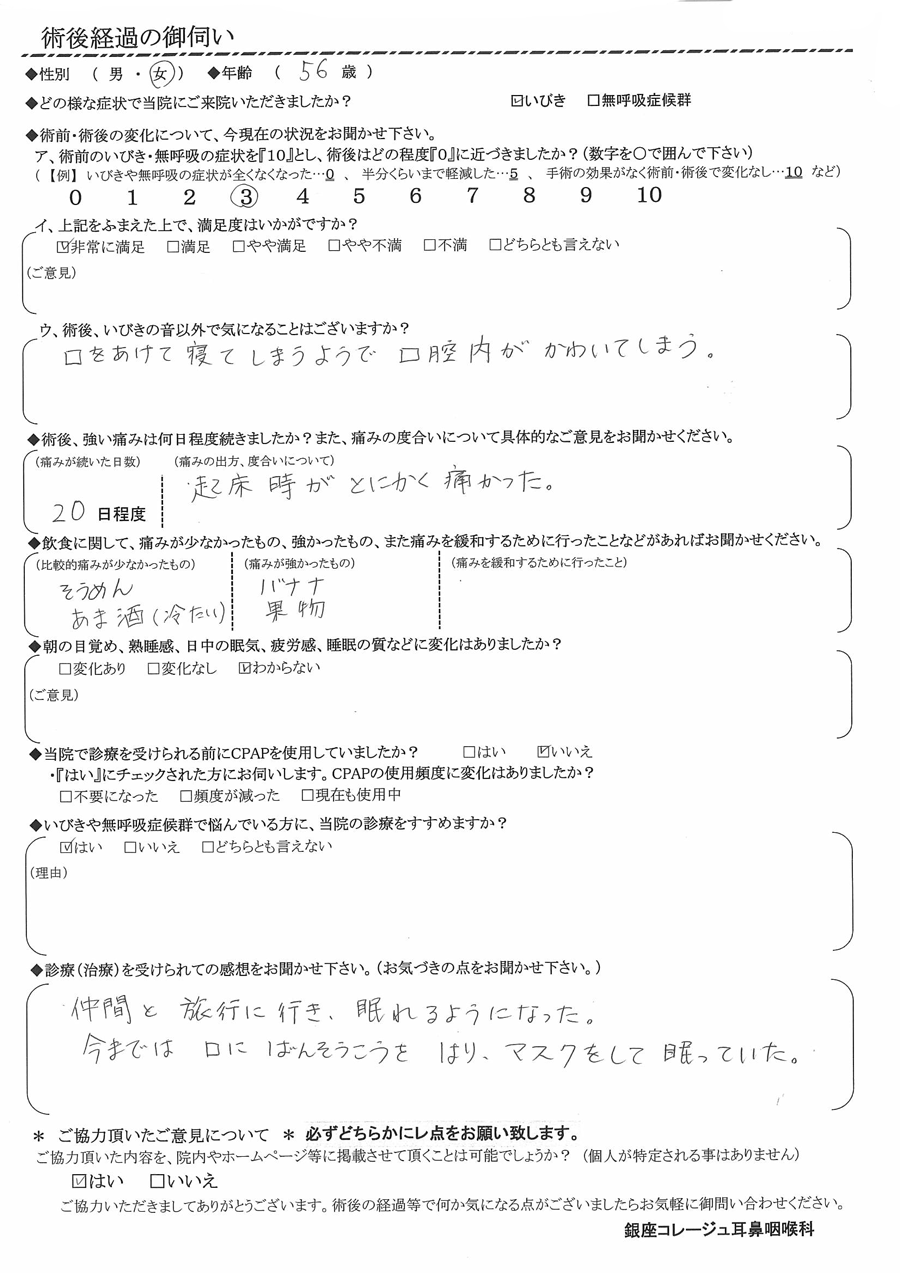 術後経過の御伺い
◆性別 （ 男 ・ 女 ） ◆年齢 （ 56 歳 ）
◆どの様な症状で当院にご来院いただきましたか？ ☑いびき □無呼吸症候群
◆術前・術後の変化について、今現在の状況をお聞かせ下さい。
ア、術前のいびき・無呼吸の症状を『10』とし、術後はどの程度『0』に近づきましたか？（数字を〇で囲んで下さい）
（ 【例】 いびきや無呼吸の症状が全くなくなった…0 、 半分くらいまで軽減した…5 、 手術の効果がなく術前・術後で変化なし…10 など）
0 1 2 3 4 5 6 7 8 9 10
イ、上記をふまえた上で、満足度はいかがですか？
☑非常に満足 □満足 □やや満足 □やや不満 □不満 □どちらとも言えない
（ご意見）
ウ、術後、いびきの音以外で気になることはございますか？
口をあけて寝てしまうようで 口腔内が かわいてしまう。
◆術後、強い痛みは何日程度続きましたか？また、痛みの度合いについて具体的なご意見をお聞かせください。
（痛みが続いた日数） （痛みの出方、度合いについて）
起床時がとにかく痛かった。
20 日程度
◆飲食に関して、痛みが少なかったもの、強かったもの、また痛みを緩和するために行ったことなどがあればお聞かせください。
（比較的痛みが少なかったもの） （痛みが強かったもの） （痛みを緩和するために行ったこと）
そうめん バナナ
あま酒（冷たい） 果物
◆朝の目覚め、熟睡感、日中の眠気、疲労感、睡眠の質などに変化はありましたか？
□変化あり □変化なし ☑わからない
（ご意見）
◆当院で診療を受けられる前にCPAPを使用していましたか？ □はい ☑いいえ
・『はい』にチェックされた方にお伺いします。CPAPの使用頻度に変化はありましたか？
□不要になった □頻度が減った □現在も使用中
◆いびきや無呼吸症候群で悩んでいる方に、当院の診療をすすめますか？
☑はい □いいえ □どちらとも言えない
（理由）
◆診療（治療）を受けられての感想をお聞かせ下さい。（お気づきの点をお聞かせ下さい。）
仲間と 旅行に行き、眠れるようになった。
今までは 口に ばんそうこうを はり、マスクをして眠っていた。
＊ ご協力頂いたご意見について ＊ 必ずどちらかにレ点をお願い致します。
ご協力頂いた内容を、院内やホームページ等に掲載させて頂くことは可能でしょうか？ （個人が特定される事はありません）
☑はい □いいえ
ご協力いただきましてありがとうございます。術後の経過等で何か気になる点がございましたらお気軽に御問い合わせください。
銀座コレージュ耳鼻咽喉科